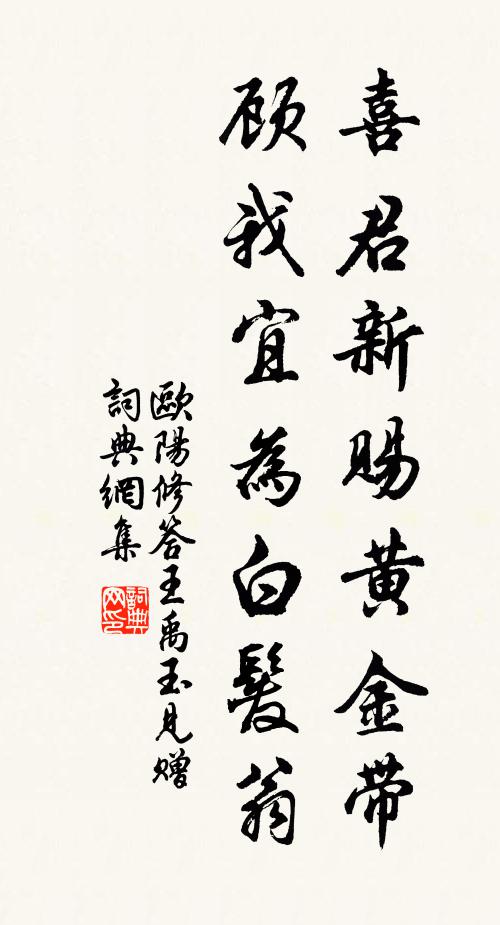 喜君新賜黃金帶
顧我宜為白髮翁
歐陽修答王禹玉見贈
詞典網集
詞典网印